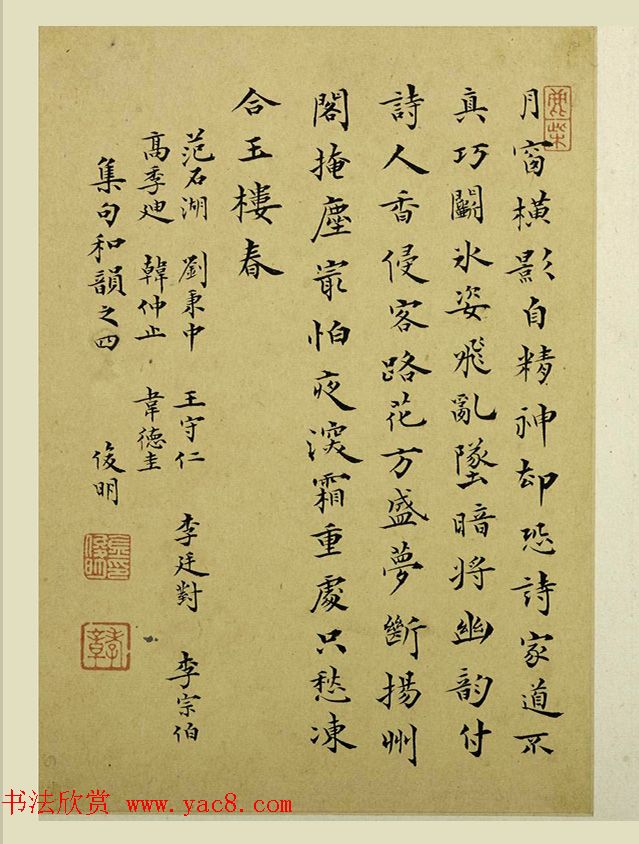 月窗橫影自精神却恐詩家道不
真巧鬭氷姿飛亂墜暗將幽韵付
詩人香侵客路花方盛夢斷揚州
閣掩塵最怕夜深霜重處只愁凍
合玉樓春
范石湖 劉秉中 王守仁 李廷對 李宗伯
高季迪 韓仲止 韋德圭
集句和韻之四 俊明
书法欣赏 www.yac8.com